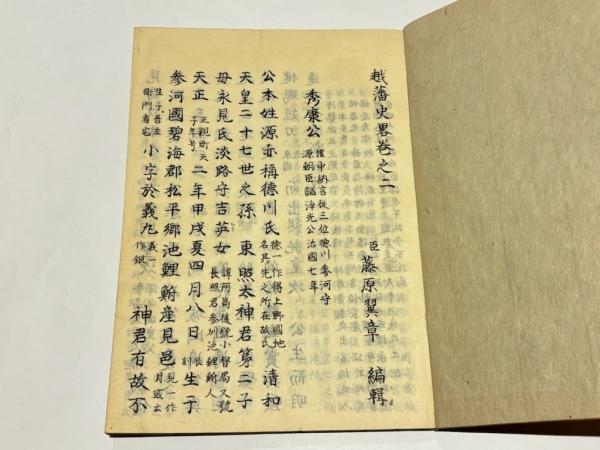 越藩史畧巻之二
臣 藤原翼章 編輯
秀康公 權中納言從三位德川參河守
源朝臣謚淨光公治國七年
公本姓源亦稱德川氏 德一作得上野國地
名其先之所在故氏 清和
天皇二十七世之孫 東照太神君第二子
母永見氏淡路守吉英女 諱阿萬後號小督局又號
長照君参州池鯉鮒人
天正 正親町天
子年号 二年甲戌夏四月八日 辰
刻 生于
参河國碧海郡松平郷池鯉鮒産見邑 見一作
月或云
生于吾左
衛門者宅 小字於義丸 義一
作銀 神君有故不